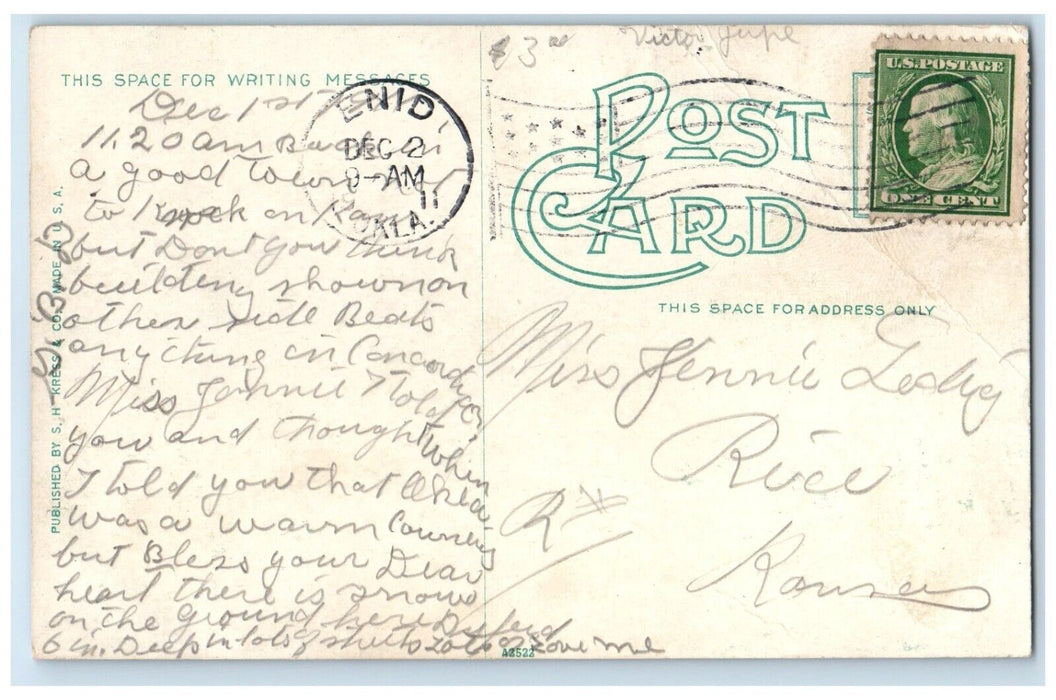 $3
THIS SPACE FOR WRITING MESSAGES
POST CARD
U.S. POSTAGE
ONE CENT
ENID
DEC 2
9-AM
11
OKLA.
THIS SPACE FOR ADDRESS ONLY
Dec 1st
11.20 am
a good
to on
but Dont you think
building shown on
other side Beats
anything in Concordia?
Miss Jennie I told
you and thought when
I told you that Okla
was a warm Country
but Bless your Dear
heart there is snow
on the ground here
6 in. Deep in lots of Lots of Love me
Miss Jennie
Rice
R#
Kansas
PUBLISHED BY S. H. KRESS & CO. MADE IN U. S. A.
A2522